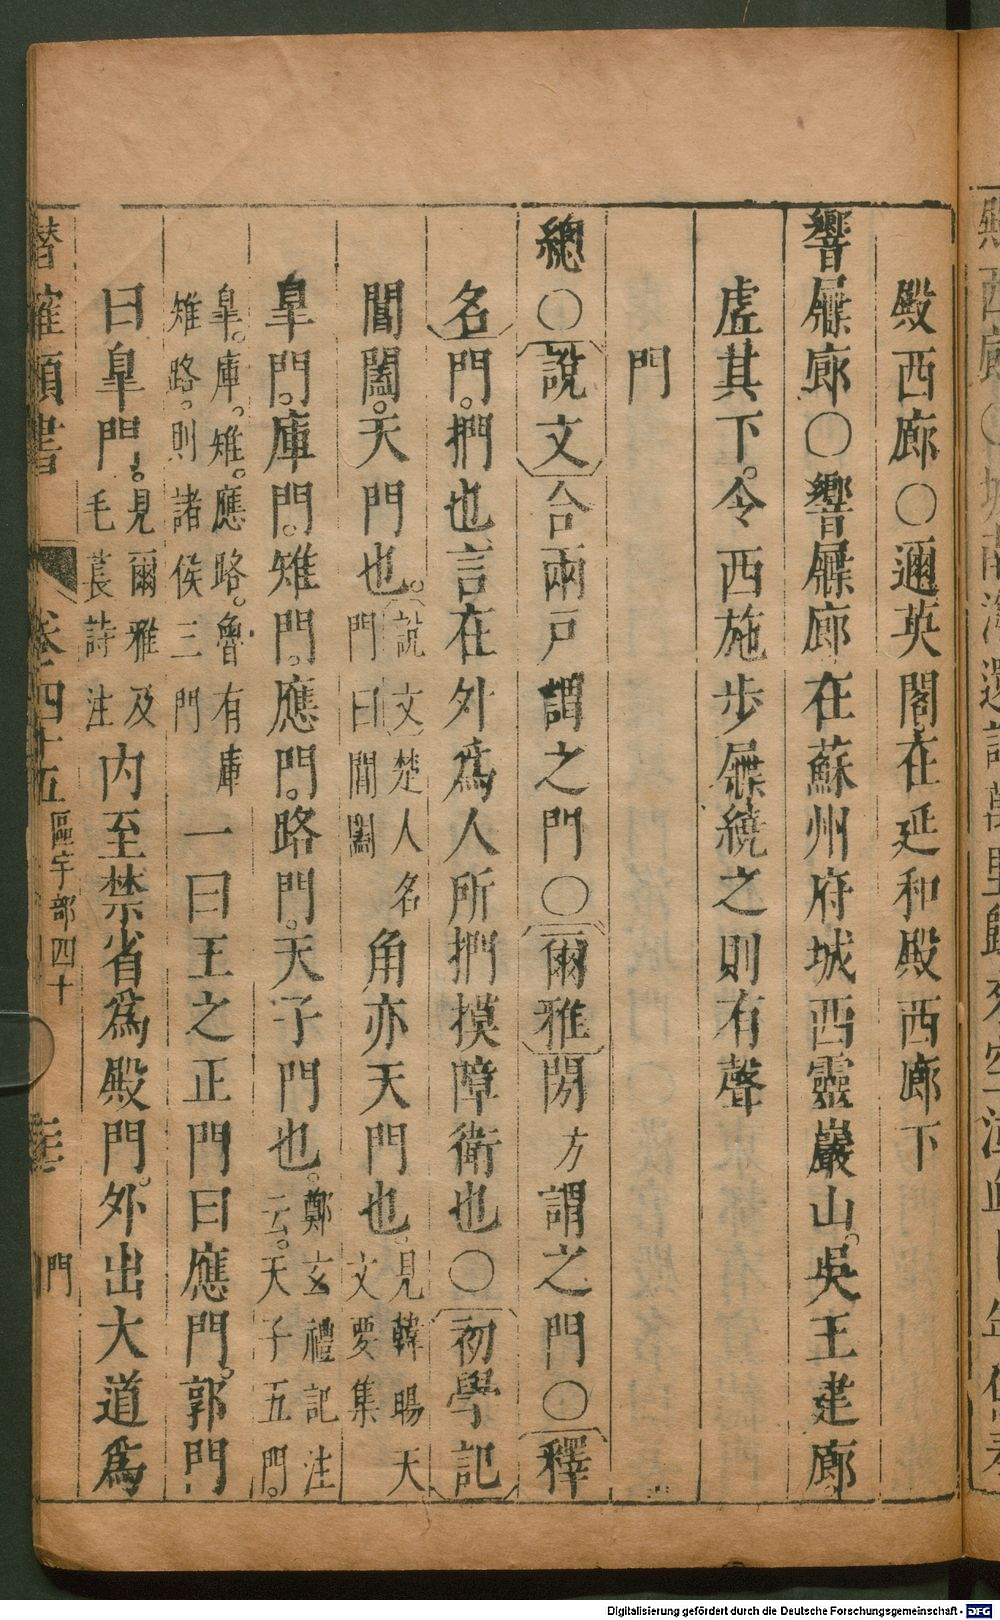 殿西廊○邇英閣在延和殿西廊下
響屧廊○響屧廊在蘇州府城西靈巖山。吳王建廊
虛其下。令西施步屧繞之則有聲
門
總○說文合兩戶謂之門○爾雅閍方謂之門○釋
名門。捫也言在外爲人所捫摸障衛也○初學記
閶闔。天門也。說文楚人名門曰閶闔角亦天門也。見韓暘天文要集
皐門。庫門。雉門。應門。路門。天子門也。鄭玄禮記注云。天子五門。
皐。庫。雉。應路。魯有庫雉路。則諸侯三門一曰王之正門曰應門。郭門
曰皐門。見爾雅及毛萇詩注內至禁省爲殿門。外出大道爲
潛確類書 卷之四十五 區宇部四十 門
Digitalisierung gefördert durch die Deutsche Forschungsgemeinschaft - DFG